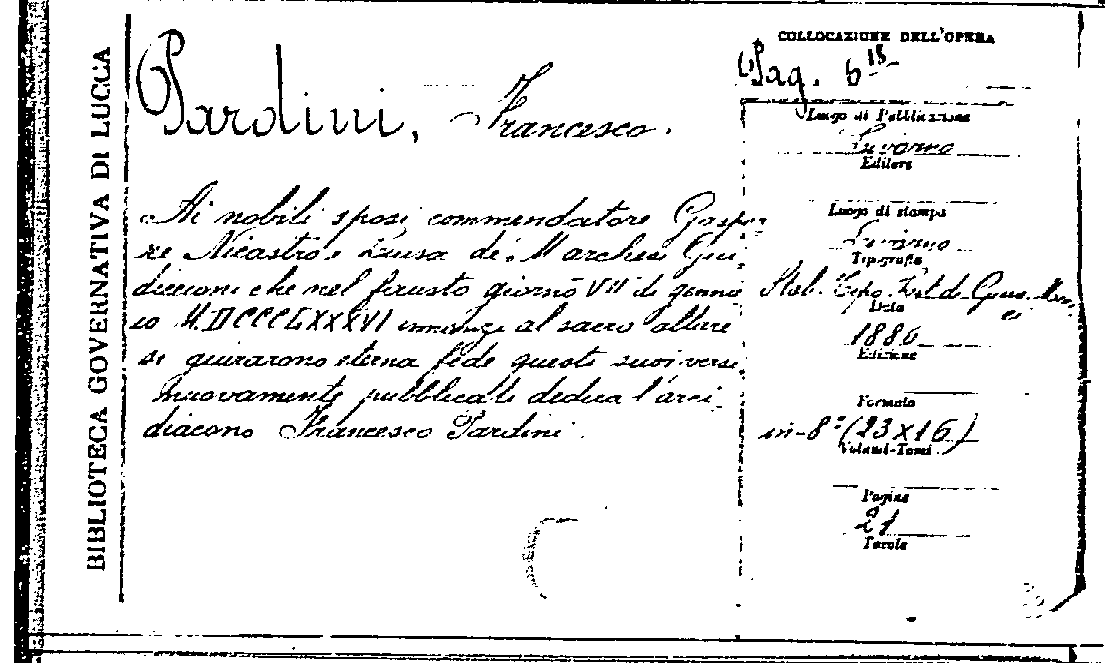 BIBLIOTECA GOVERNATIVA DI LUCCA
Pardini, Francesco.
Ai nobili sposi commendatore Gaspa-
re Nicastro e Luisa de' Marchesi Gui-
diccioni che nel fausto giorno VII di genna-
io M.DCCCLXXXVI innanzi al sacro altare
si giurarono eterna fede questi suoi versi
nuovamente pubblicati dedica l'arci-
diacono Francesco Pardini.
COLLOCAZIONE DELL'OPERA
Pag. 6
Luogo di Pubblicazione
Livorno
Editore
Luogo di stampa
Livorno
Tipografia
Stab. Tipo. Lit. di Gius.
Data
1886
Edizione
Formato
in-8° (23x16)
Volumi-Tomi
Pagine
21
Tavole